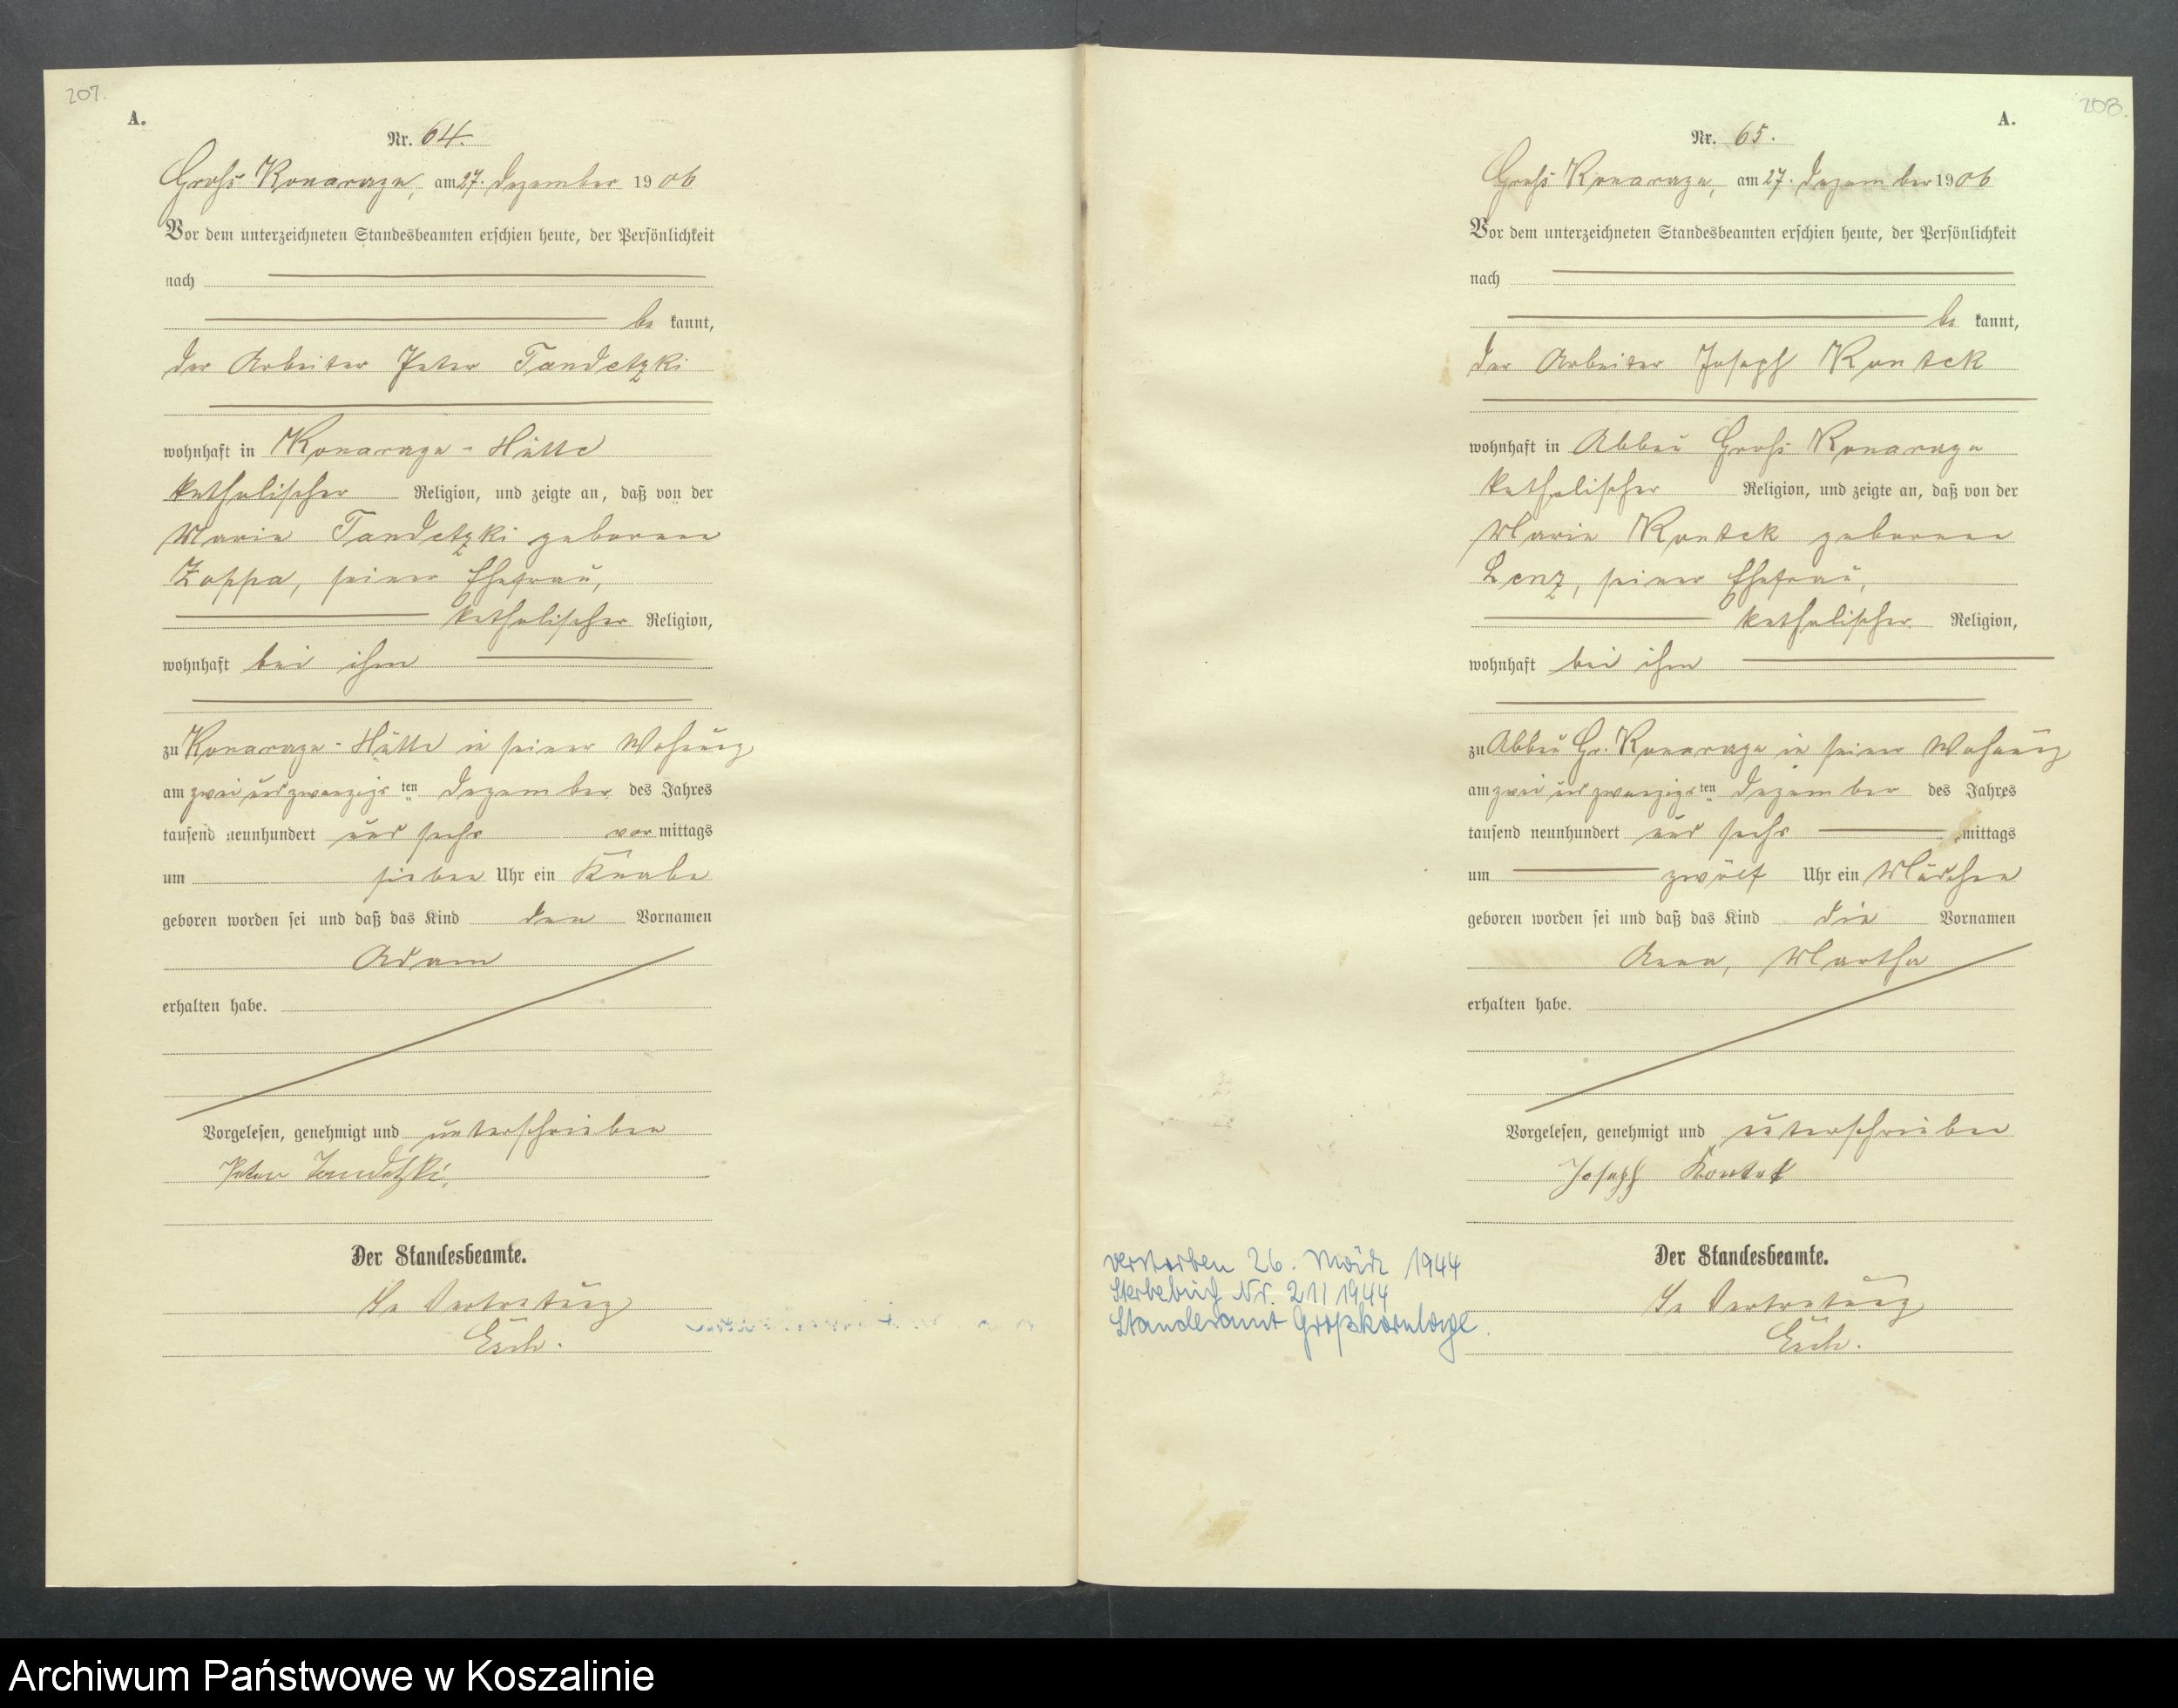 207.
A.
Nr. 64.
Groß Konarczyn, am 27. Dezember 1906
Vor dem unterzeichneten Standesbeamten erschien heute, der Persönlichkeit
nach
be kannt,
der Arbeiter Peter Tandetzki
wohnhaft in Konarczyn-Hütte
katholischer Religion, und zeigte an, daß von der
Maria Tandetzki geborenen
Zoppa, seiner Ehefrau,
katholischer Religion,
wohnhaft bei ihm
zu Konarczyn-Hütte in seiner Wohnung
am zwei und zwanzigsten Dezember des Jahres
tausend neunhundert und sechs vor mittags
um sieben Uhr ein Knabe
geboren worden sei und daß das Kind den Vornamen
Adam
erhalten habe.
Vorgelesen, genehmigt und unterschrieben
Peter Tandetzki.
Der Standesbeamte.
In Vertretung
208.
A.
Nr. 65.
Groß Konarczyn, am 27. Dezember 1906
Vor dem unterzeichneten Standesbeamten erschien heute, der Persönlichkeit
nach
be kannt,
der Arbeiter Joseph Kontek
wohnhaft in Abbau Groß Konarczyn
katholischer Religion, und zeigte an, daß von der
Maria Kontek geborenen
Lenz, seiner Ehefrau,
katholischer Religion,
wohnhaft bei ihm
zu Abbau Gr. Konarczyn in seiner Wohnung
am zwei und zwanzigsten Dezember des Jahres
tausend neunhundert und sechs mittags
um zwölf Uhr ein Mädchen
geboren worden sei und daß das Kind die Vornamen
Anna, Martha
erhalten habe.
Vorgelesen, genehmigt und unterschrieben
Joseph Kontek
Der Standesbeamte.
In Vertretung
verstorben 26. März 1944
Sterbebuch Nr. 211 1944
Standesamt
Archiwum Państwowe w Koszalinie